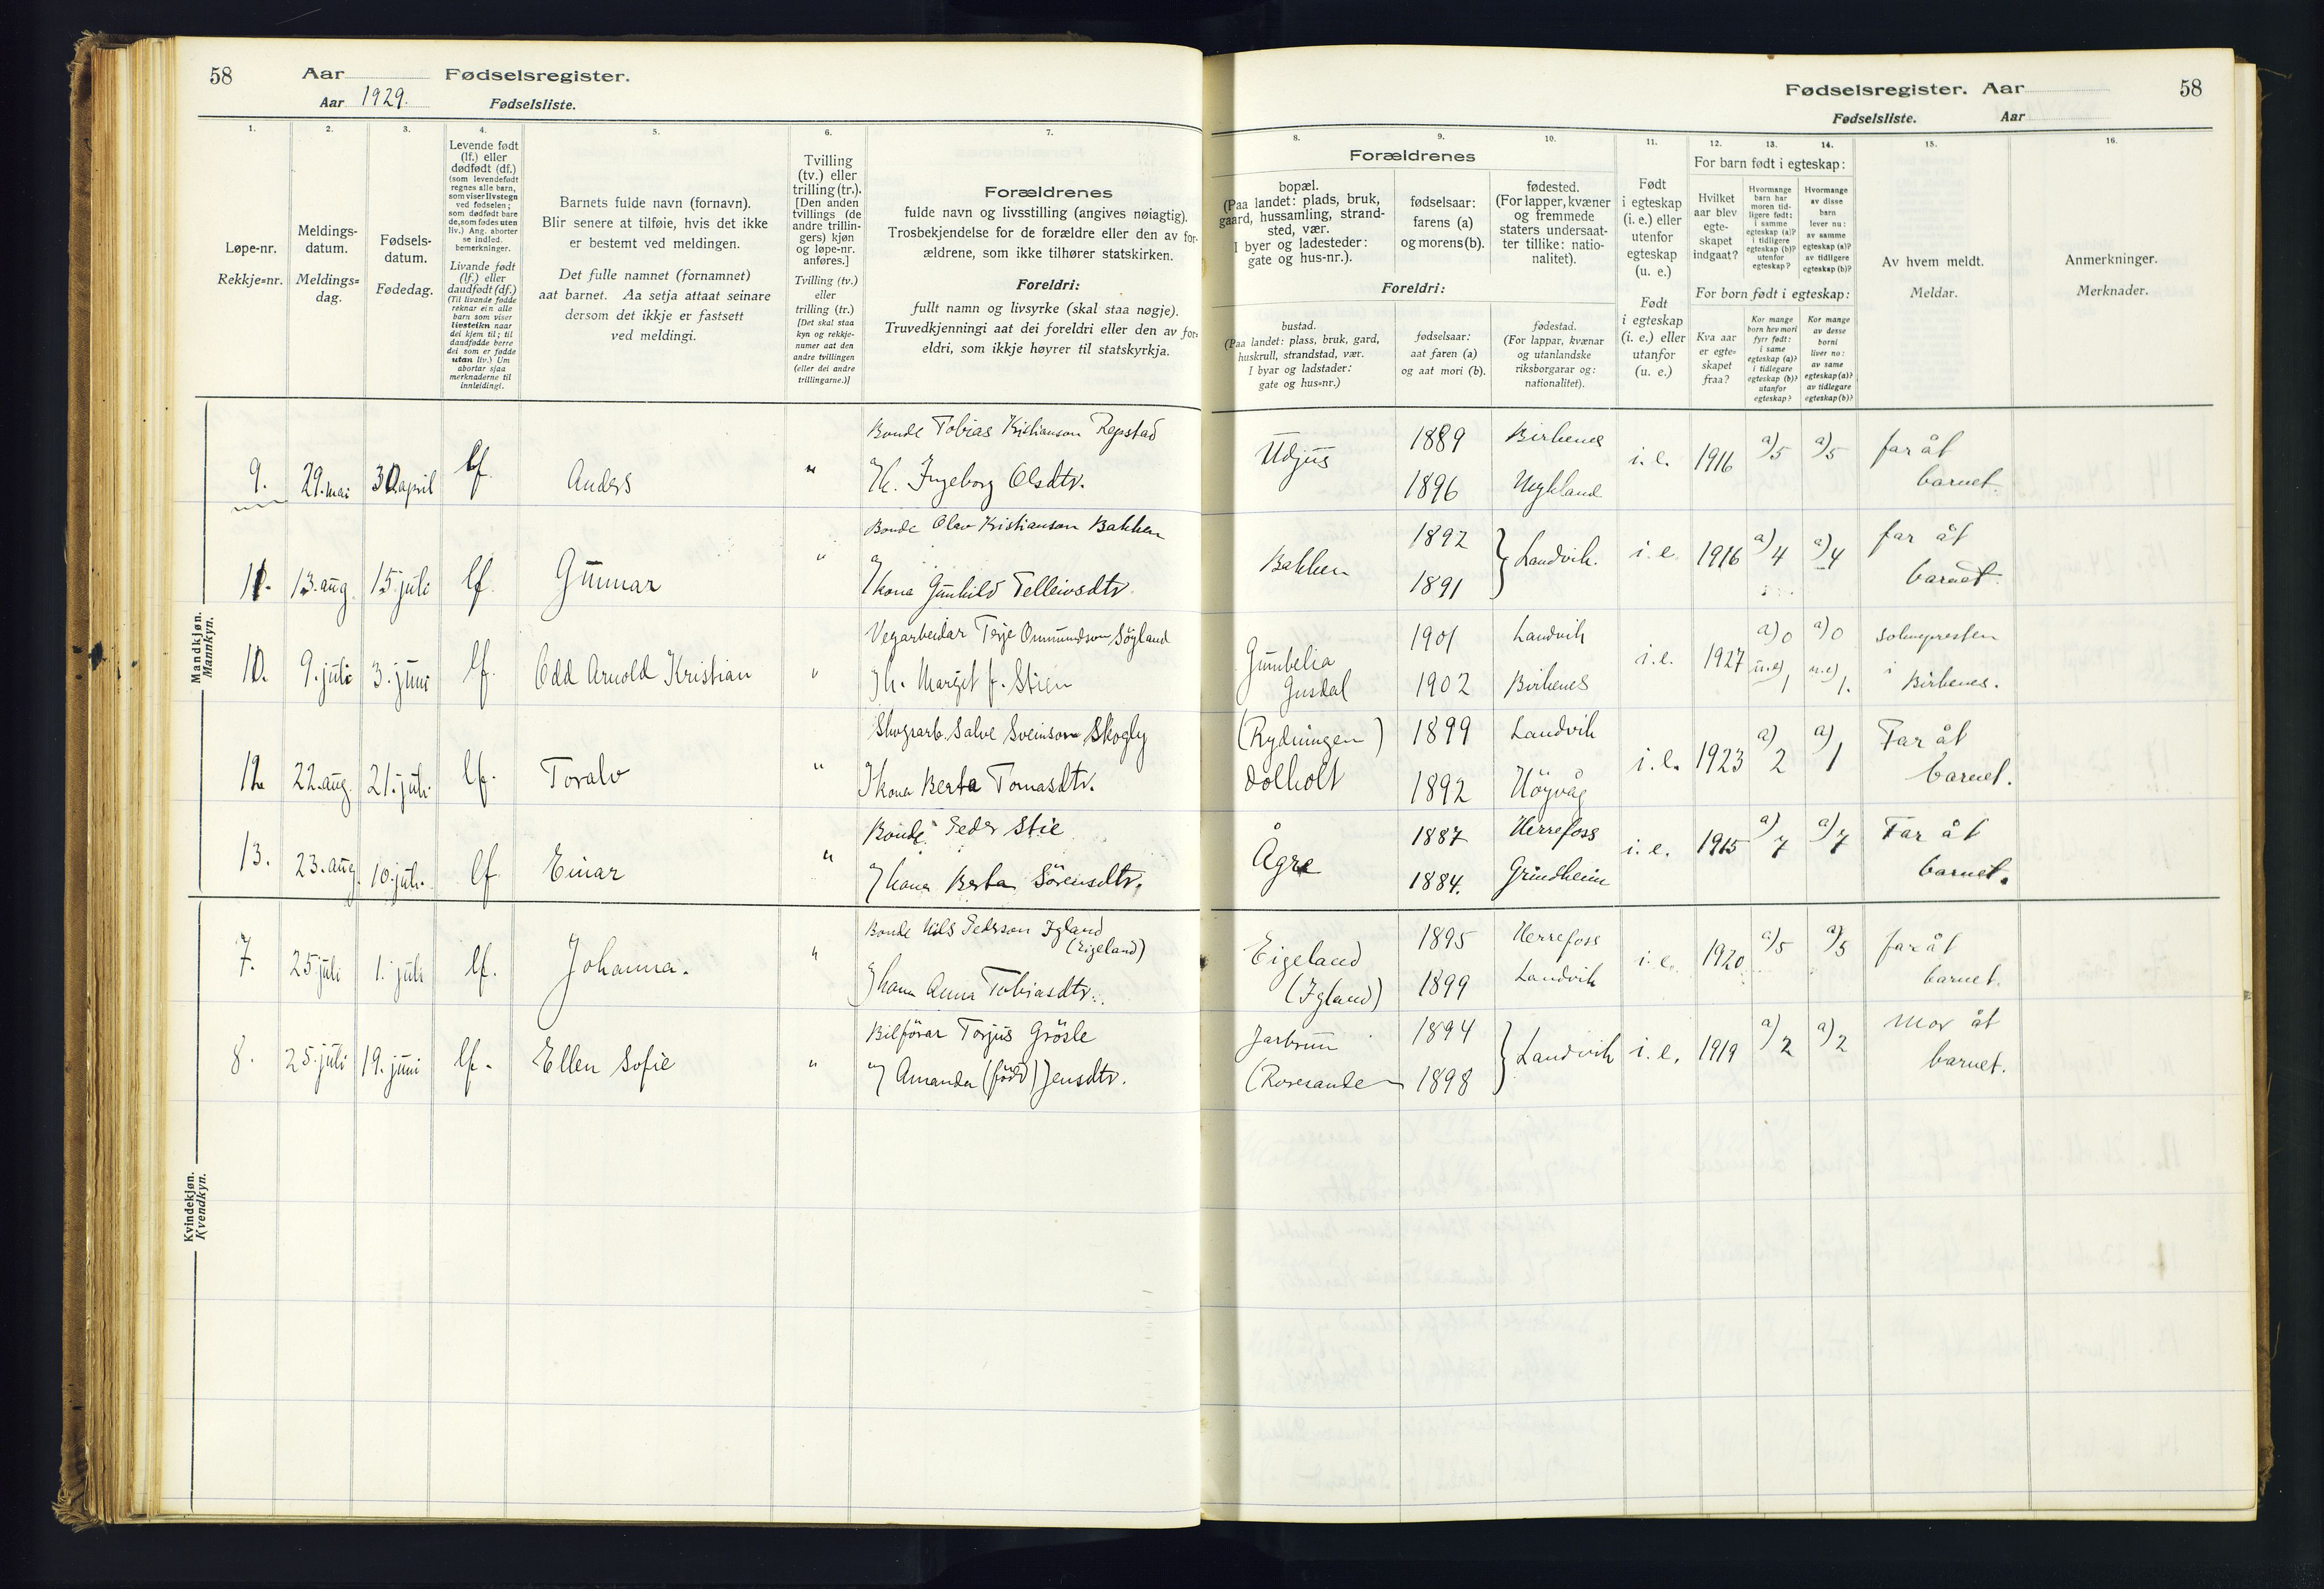 58 Aar Fødselsregister.
Aar 1929. Fødselsliste.
Fødselsregister. Aar 58
Fødselsliste. Aar
1.
Løpe-nr.
Rekkje=nr.
2.
Meldings-
datum.
Meldings=
dag.
3.
Fødsels-
datum.
Fødedag.
4.
Levende født
(lf.) eller
dødfødt (df.)
(som levendefødt
regnes alle barn,
som viser livstegn
ved fødselen;
som dødfødt bare
de, som fødes uten
liv.) Ang. aborter
se indled.
bemerkninger.
Livande født
(lf.) eller
daudfødt (df.)
(Til livande fødde
reknar ein alle
barn som viser
livsteikn naar
dei kjem til; til
daudfødde berre
dei som er fødde
utan liv.) Um
abortar sjaa
merknaderne til
innleidingi.
5.
Barnets fulde navn (fornavn).
Blir senere at tilføie, hvis det ikke
er bestemt ved meldingen.
Det fulle namnet (fornamnet)
aat barnet. Aa setja attaat seinare
dersom det ikkje er fastsett
ved meldingi.
6.
Tvilling
(tv.) eller
trilling (tr.).
[Den anden
tvillings (de
andre trillin-
gers) kjøn
og løpe-nr.
anføres.]
Tvilling (tv.)
eller
trilling (tr.)
[Det skal staa
kyn og rekkje-
numer aat den
andre tvillingen
(eller dei andre
trillingarne.)]
7.
Forældrenes
fulde navn og livsstilling (angives nøiagtig).
Trosbekjendelse for de forældre eller den av for-
ældrene, som ikke tilhører statskirken.
Foreldri:
fullt namn og livsyrke (skal staa nøgje).
Truvedkjenningi aat dei foreldri eller den av for-
eldri, som ikkje høyrer til statskyrkja.
Forældrenes
8.
bopæl.
(Paa landet: plads, bruk,
gaard, hussamling, strand-
sted, vær.
I byer og ladesteder:
gate og hus-nr.).
9.
fødselsaar:
farens (a)
og morens (b).
10.
fødested.
(For lapper, kvæner
og fremmede
staters undersaat-
ter tillike: natio-
nalitet).
Foreldri:
bustad.
(Paa landet: plass, bruk, gard,
huskrull, strandstad, vær.
I byar og ladstader:
gate og hus=nr.)
fødselsaar:
aat faren (a)
og aat mori (b).
fødestad.
(For lappar, kvænar
og utanlandske
riksborgarar og:
nationalitet).
11.
Født
i egteskap
(i. e.) eller
utenfor
egteskap
(u. e.)
Født
i egteskap
(i. e.) eller
utanfor
(u. e.)
12. 13. 14.
For barn født i egteskap:
Hvilket
aar blev
egte-
skapet
indgaat?
Hvormange
barn har
moren tid-
ligere født:
i samme
egteskap (a)?
i tidligere
egteskap (b)?
utenfor
egteskap?
Hvormange
av disse
barn
lever nu:
av samme
egteskap (a)?
av tidligere
egteskap (b)?
For born født i egteskap:
Kva aar
er egte-
skapet
fraa?
Kor mange
born hev mori
fyrr født:
i same
egteskap (a)?
i tidlegare
egteskap (b)?
utanfor
egteskap?
Kor mange
av desse
borni
liver no:
av same
egteskap (a)?
av tidlegare
egteskap (b)?
15.
Av hvem meldt.
Meldar.
16.
Anmerkninger.
Merknader.
Mandkjøn.
Mannkyn.
Bonde Tobias Kristianson Repstad Udjus 1889 Birkenes
9. 29. mai 30 april lf. Anders " Hk. Ingeborg Olsdtr. 1896 i. e. 1916 a) 5 a) 5 far åt barnet.
Bonde Olav Kristianson Bakken 1892
11. 13. aug. 15. juli lf. Gunnar " Hkona Gunhild Telleivsdtr. Bakken 1891 Landvik. i. e. 1916 a) 4 a) 4 far åt barnet.
Vegarbeidar Terje Ommundson Søyland 1901 Landvik
10. 9. juli 3. juni lf. Odd Arnold Kristian " Hk. Margit f. Stien Gusdal 1902 Birkenes i. e. 1927 a) 0 u.e) 1 a) 0 u.e) 1. soknepresten i Birkenes.
Skogsarb. Salve Sveinson Skogly (Rydningen) 1899 Landvik
12. 22. aug. 21. juli lf. Toralv " Hkona Berta Tomasdtr. Dolholt 1892 Höyvåg i. e. 1923 a) 2 a) 1 Far åt barnet.
Bonde Peder Stie 1887 Herrefoss
13. 23. aug. 10. juli lf. Einar " Hkona Berta Sörensdtr. Ågre 1884. Grindheim i. e. 1915 a) 7 a) 7 Far åt barnet.
Kvindekjøn.
Kvendkyn.
Bonde Nils Pederson Igland (Eigeland) Eigeland 1895 Herrefoss
7. 25 juli 1. juli lf. Johanna. " Hkona Anna Tobiasdtr. (Igland) 1899 Landvik i. e. 1920 a) 5 a) 5 far åt barnet.
Bilförar Torjus Grösle Jarbrunn 1894
8. 25. juli 19. juni lf. Ellen Sofie " Hk Amanda (född) Jensdtr. (Roresanden 1898 Landvik i. e. 1919 a) 2 a) 2 Mor åt barnet.